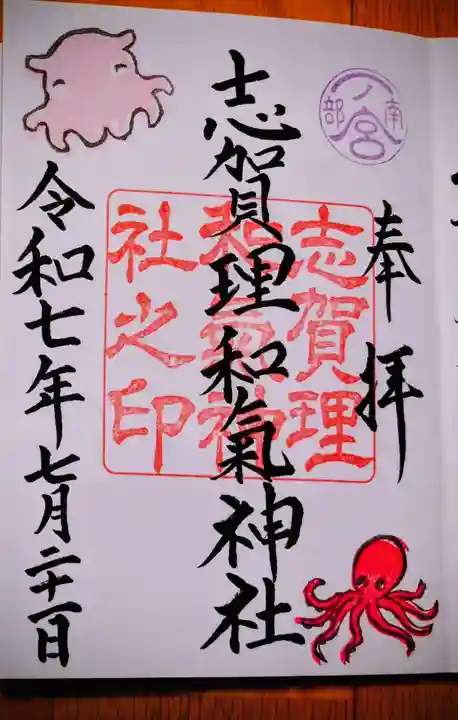 奉拝
南部一ノ宮
志賀理和氣神社
志賀理
和氣神
社之印
令和七年七月二十一日